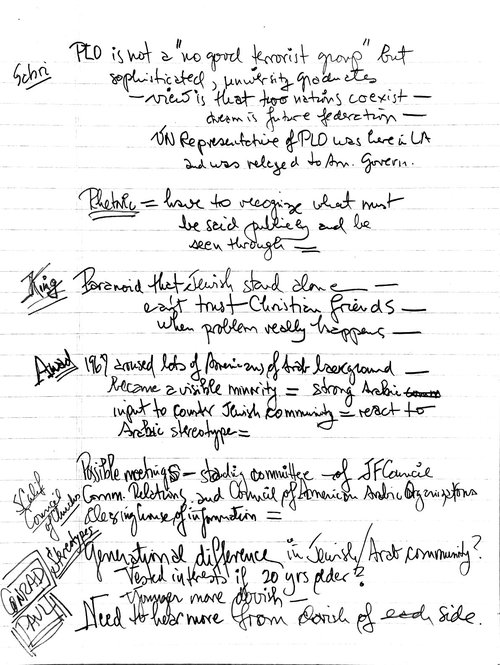 Sabri
PLO is not a "no good terrorist group" but
sophisticated, university graduates
— view is that two nations coexist —
dream is future federation —
UN Representative of PLO was here in LA
and was relayed to Am. Govern.
Rhetoric = have to recognize what must
be said publicly and be
seen through =
King
Paranoid that Jewish stand alone —
can't trust Christian friends —
when problem really happens —
Awad
1967 aroused lots of Americans of Arab background —
became a visible minority = strong Arabic
input to counter Jewish community = react to
Arabic stereotype =
Possible meetings — standing committee — of JFCouncil
Comm. Relations, and Council of American Arabic Organizations
clearing house of information =
Council
Stereotypes
Generational difference in Jewish/Arab community?
Vested interests if 20 yrs older?
Younger more dovish —
CONRAD
PAUL
Need to hear more from dovish of each side.